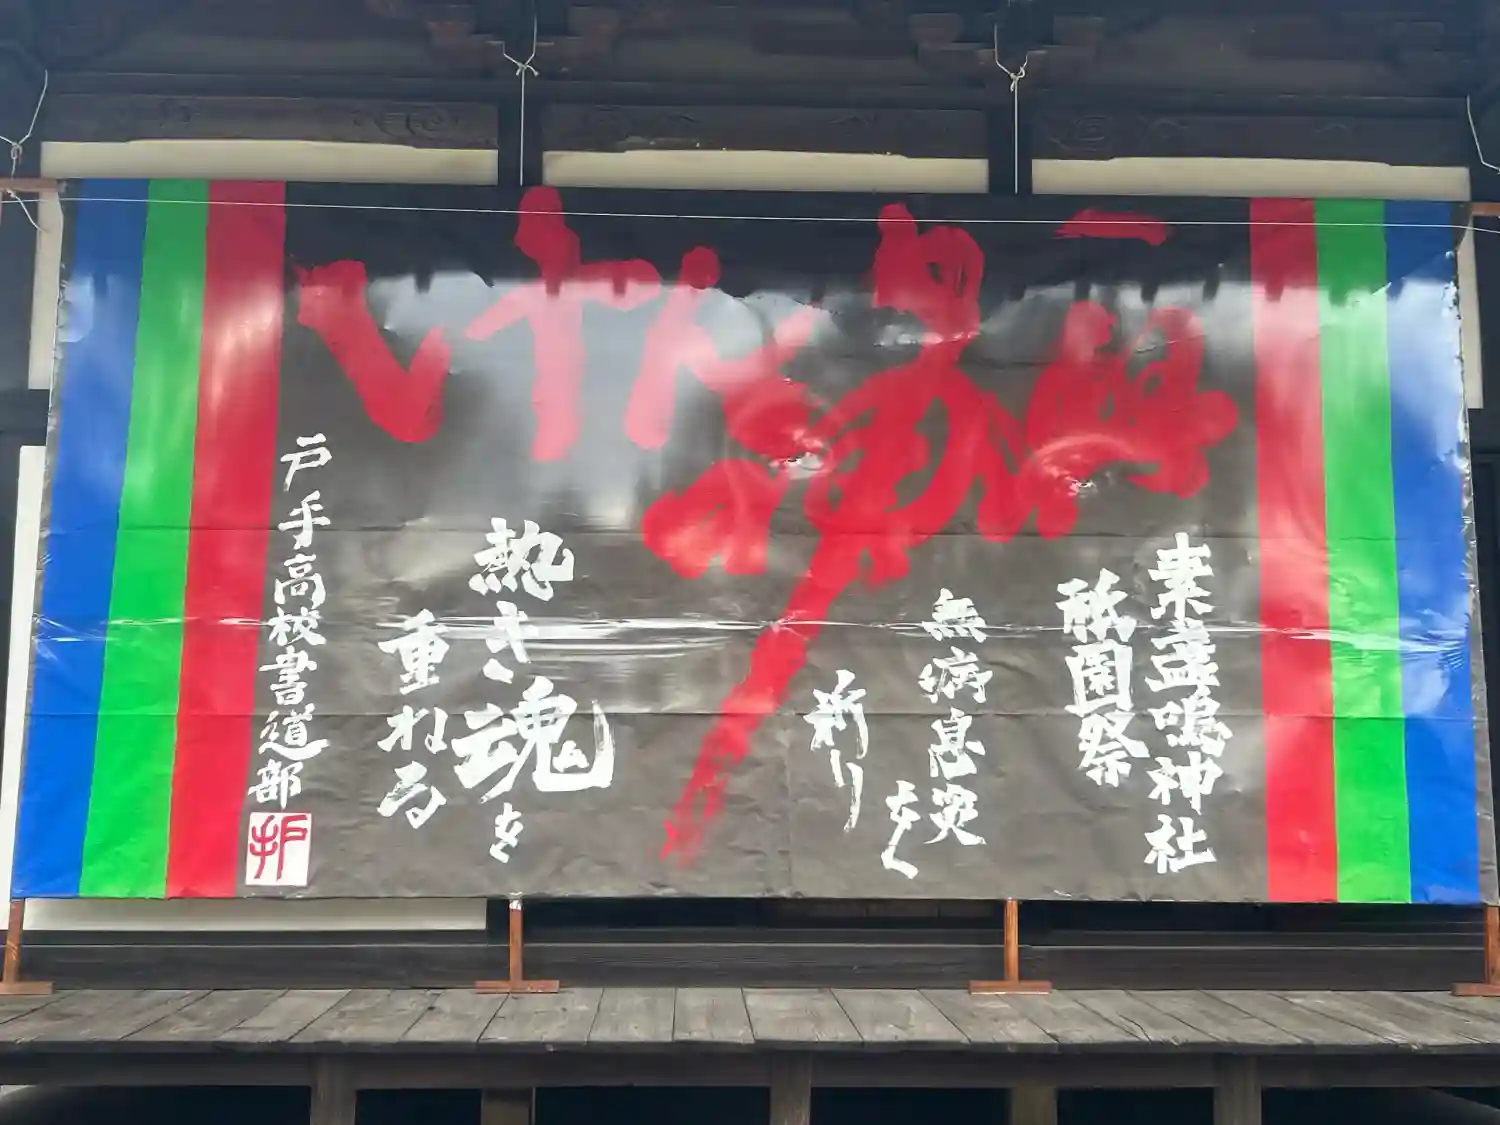 けんか神輿
素盞嗚神社
祇園祭
無病息災
を
祈り
熱き魂を
重ねる
戸手高校書道部
戸手